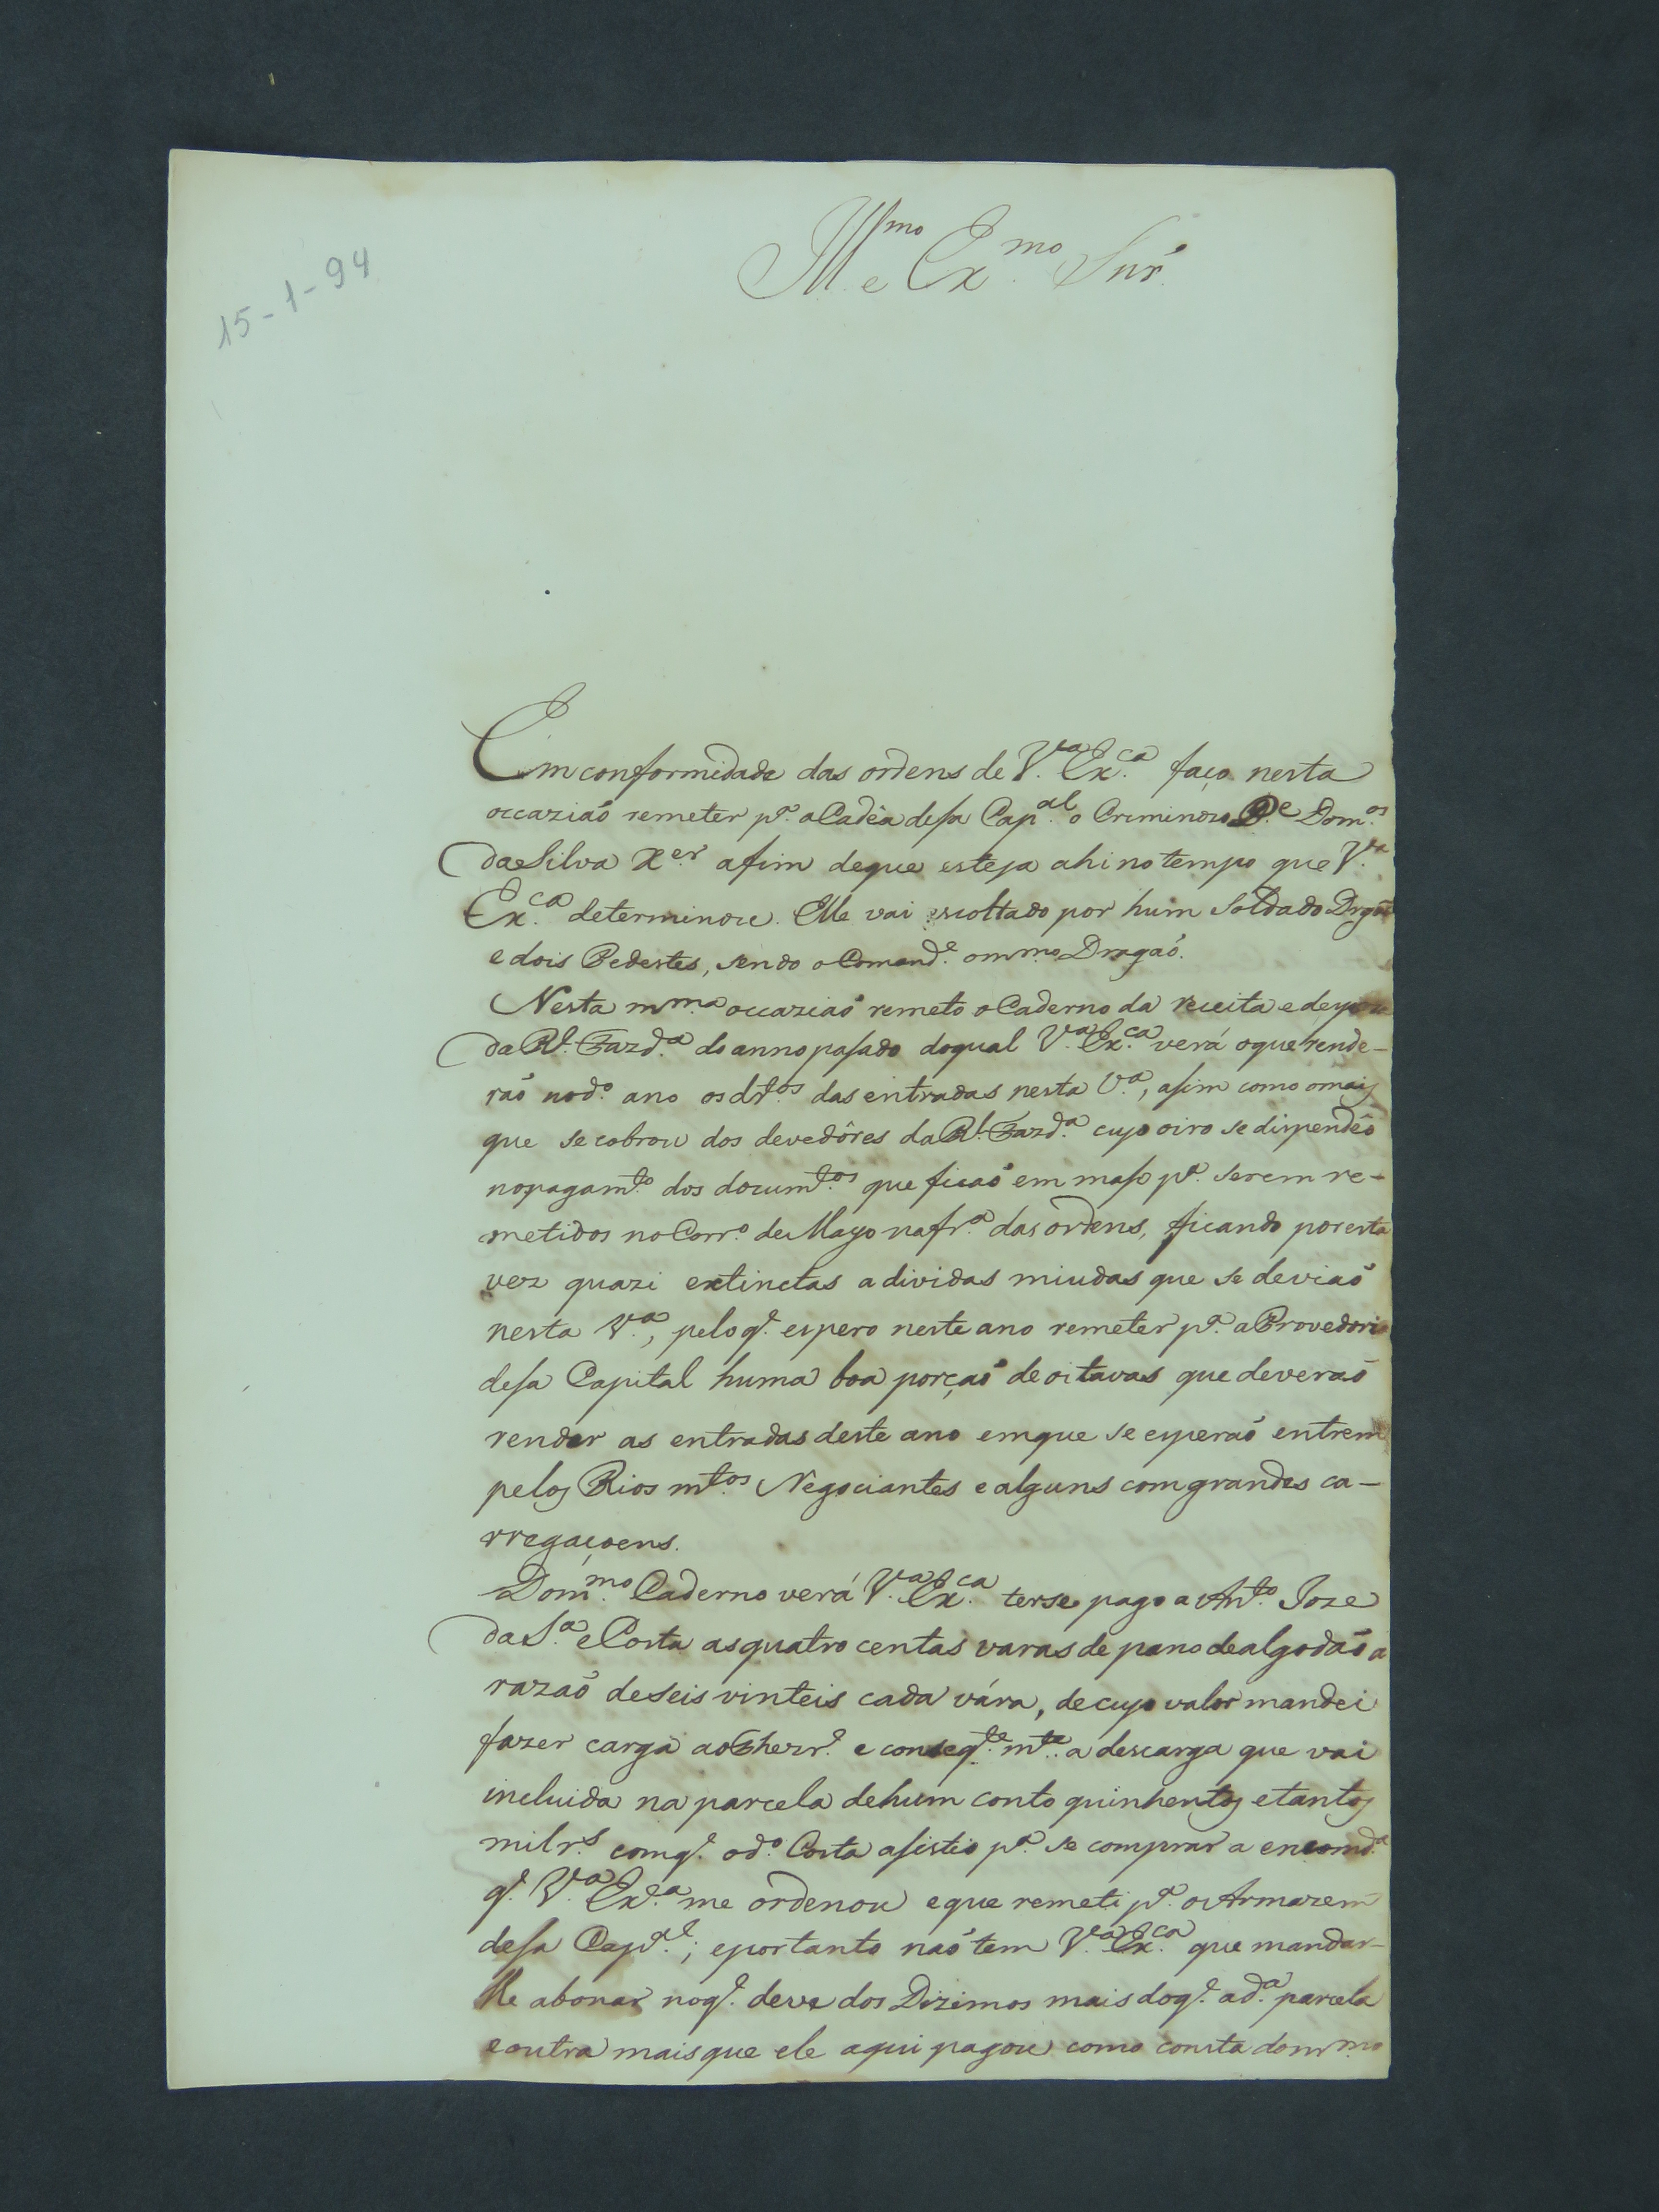 15-1-94
Ill.mo e Ex.mo Snr.
Em conformidade das ordens de V.a Ex.ca faço nesta
occaziaõ remeter p.a a Cadêa desa Cap.al o Criminozo P.e Dom.os
da Silva X.er afim de que esteja ahi no tempo que V.a
Ex.ca determinou. Elle vai escoltado por hum Soldado Drgaõ
e dois Pedestes, sendo o Comand.e o mmo Dragaõ.
Nesta mm.a occaziaõ remeto o Caderno da receita e despeza
da R.l Fazd.a do anno pasado do qual V.a Ex.ca verá o que rende-
raõ no d.o ano os dr.tos das entradas nesta V.a, asim como o mais
que se cobrou dos devedôres da R.l Fazd.a cujo oiro se dispendêo
no pagam.to dos docum.tos que ficaõ em maso p.a serem re-
metidos no Corr.o de Mayo na fr.a das ordens, ficando por esta
vez quazi extinctas a dividas miudas que se deviaõ
nesta V.a, pelo q.e espero neste ano remeter p.a a Provedoria
desa Capital huma boa porçaõ de oitavas que deveraõ
render as entradas deste ano em que se esperaõ entrem
pelos Rios m.tos Negociantes e alguns com grandes ca-
rregaçoens.
Do m.mo Caderno verá V.a Ex.ca terse pago a Ant.o Joze
da S.a e Costa as quatro centas varas de pano de algodaõ a
razaõ de seis vinteis cada vára, de cujo valor mandei
fazer carga ao Thezr.o e conseq.te m.te a descarga que vai
incluida na parcela de hum conto quinhentos e tantos
mil r.s com q.e o d.o Costa asistio p.a se comprar a encomd.a
q.e V.a Ex.a me ordenou e que remeti p.a o Armazem
desa Cap.al; e portanto naõ tem V.a Ex.ca que mandar-
lle abonar no q.e deve dos Dizimos mais do q.e a d.a parcela
e outra mais que ele aqui pagou como consta do mmo